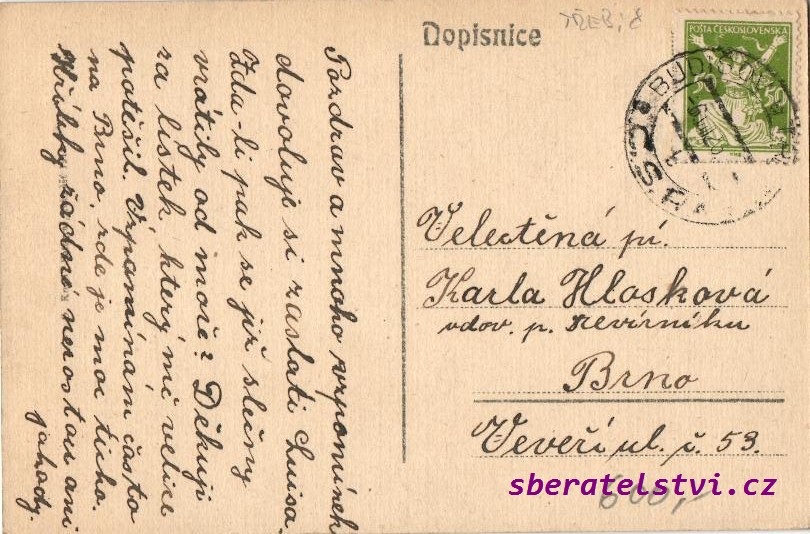 TŘEBÍČ
Dopisnice
POŠTA ČESKOSLOVENSKÁ
50
BUDI
Pozdrav a mnoho vzpomínek
dovoluje si zaslati Luisa.
Zda-li pak se již slečny
vrátily od moře? Děkuji
za lístek, který mě velice
potěšil. Vzpomínám často
na Brno, zde je moc ticho.
žádné nerostou ani
jahody.
Velectěná pí.
Karla Hlosková
vdov. p. revírníku
Brno
Veveří ul. č. 53.
600,-
sberatelstvi.cz